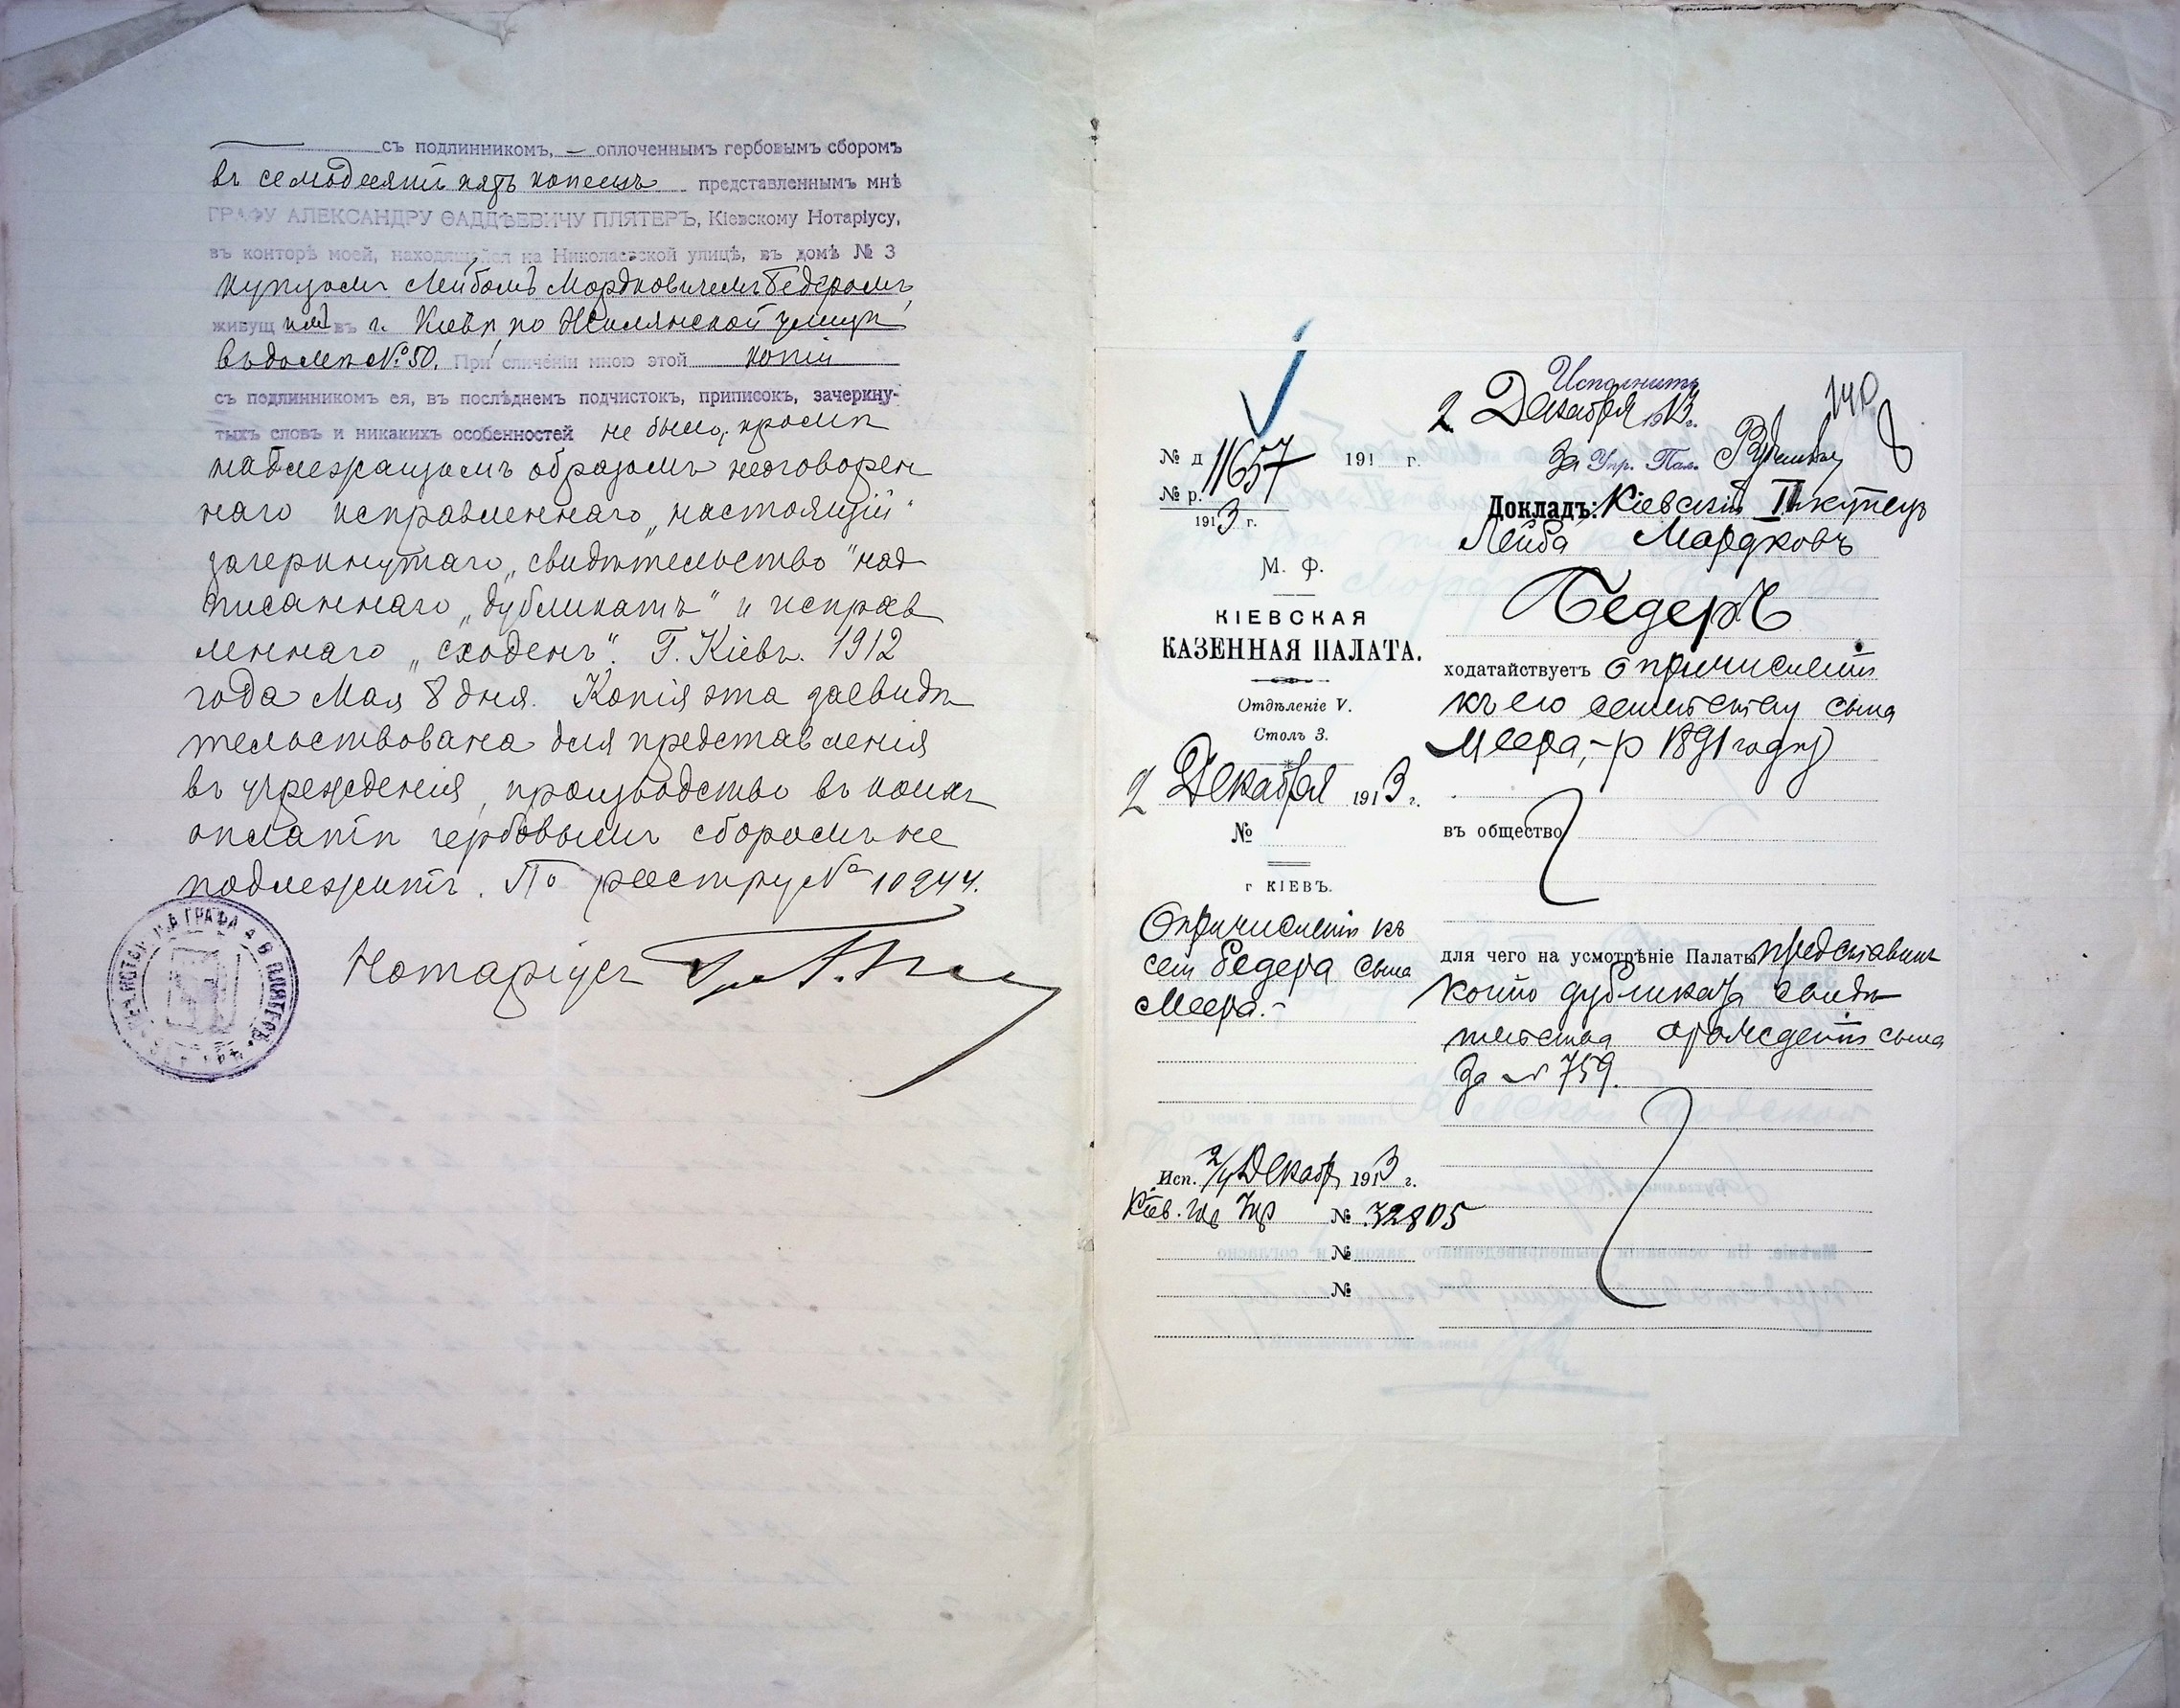 съ подлинникомъ, — оплоченнымъ гербовымъ сборомъ
въ семьдесятъ пять копеекъ представленнымъ мнѣ
ГРАФУ АЛЕКСАНДРУ ѲАДДѢЕВИЧУ ПЛЯТЕРЪ, Кіевскому Нотаріусу,
въ конторѣ моей, находящейся на Николаевской улицѣ, въ домѣ № 3
купцомъ Лейбомъ Мордковичемъ Бедеромъ,
живущимъ въ г. Кіевѣ, по Жилянской улицѣ
въ домѣ № 50. При сличеніи мною этой копіи
съ подлинникомъ ея, въ послѣднемъ подчистокъ, приписокъ, зачеркну-
тыхъ словъ и никакихъ особенностей не было, кромѣ
надлежащимъ образомъ неоговорен
наго исправленнаго „настоящій"
зачеркнутаго „свидѣтельство" над
писаннаго „дубликатъ" и исправ
леннаго „сходенъ". Г. Кіевъ. 1912
года Мая 8 дня. Копія эта засвидѣ
тельствована для представленія
въ учрежденія, производство въ коихъ
оплатѣ гербовымъ сборомъ не
подлежитъ. По реестру № 10244.
Нотаріусъ
Исполнить
2 Декабря 1913 г.
140
За Упр. Пал.
№ д 11657 191 г.
№ р.
1913 г.
М. Ф.
КІЕВСКАЯ
КАЗЕННАЯ ПАЛАТА.
Отдѣленіе V.
Столъ 3.
2 Декабря 1913 г.
№
г КІЕВЪ.
О причисленіи къ
сем Бедера сына
Меера.-
Исп. 2/4 Декабр 1913 г.
Кіев. Гор Упр № 32805
№
№
Докладъ: Кіевскій II г. купецъ
Лейба Мордковъ
Бедеръ
ходатайствуетъ о причисленіи
къ его семейству сына
Меера, - р 1891 году
въ общество
для чего на усмотрѣніе Палаты представилъ
копію дубликата свидѣ
тельства о рожденіи сына
За № 759.